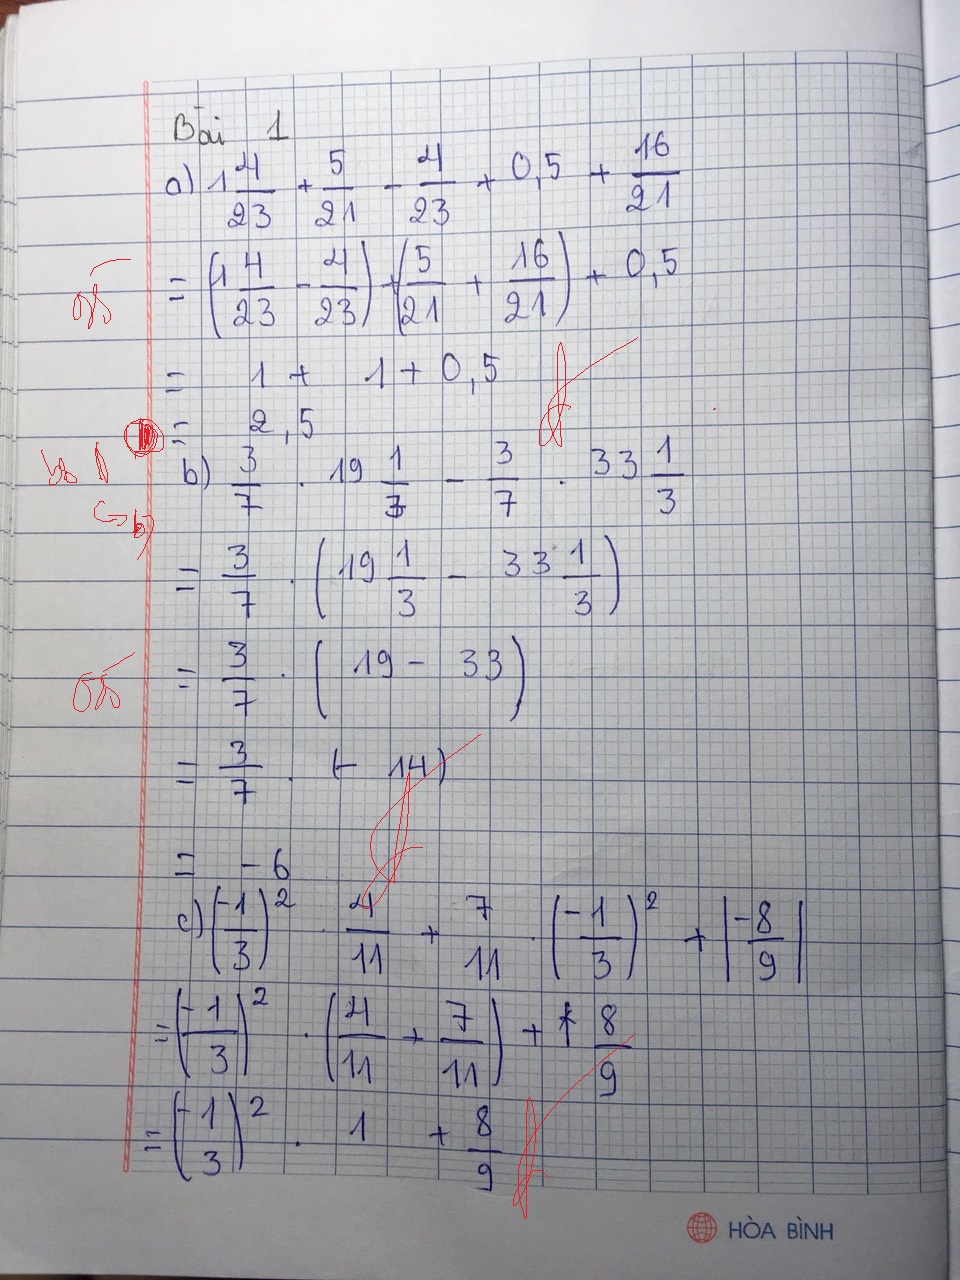 Bài 1
a) 1 4/23 + 5/21 - 4/23 + 0,5 + 16/21
= (1 4/23 - 4/23) + (5/21 + 16/21) + 0,5
= 1 + 1 + 0,5
= 2,5
b) 3/7 . 19 1/3 - 3/7 . 33 1/3
b)
= 3/7 . (19 1/3 - 33 1/3)
= 3/7 . (19 - 33)
= 3/7 . (- 14)
= - 6
c) (-1/3)² . 4/11 + 7/11 . (-1/3)² + |-8/9|
= (-1/3)² . (4/11 + 7/11) + 8/9
= (-1/3)² . 1 + 8/9
HÒA BÌNH